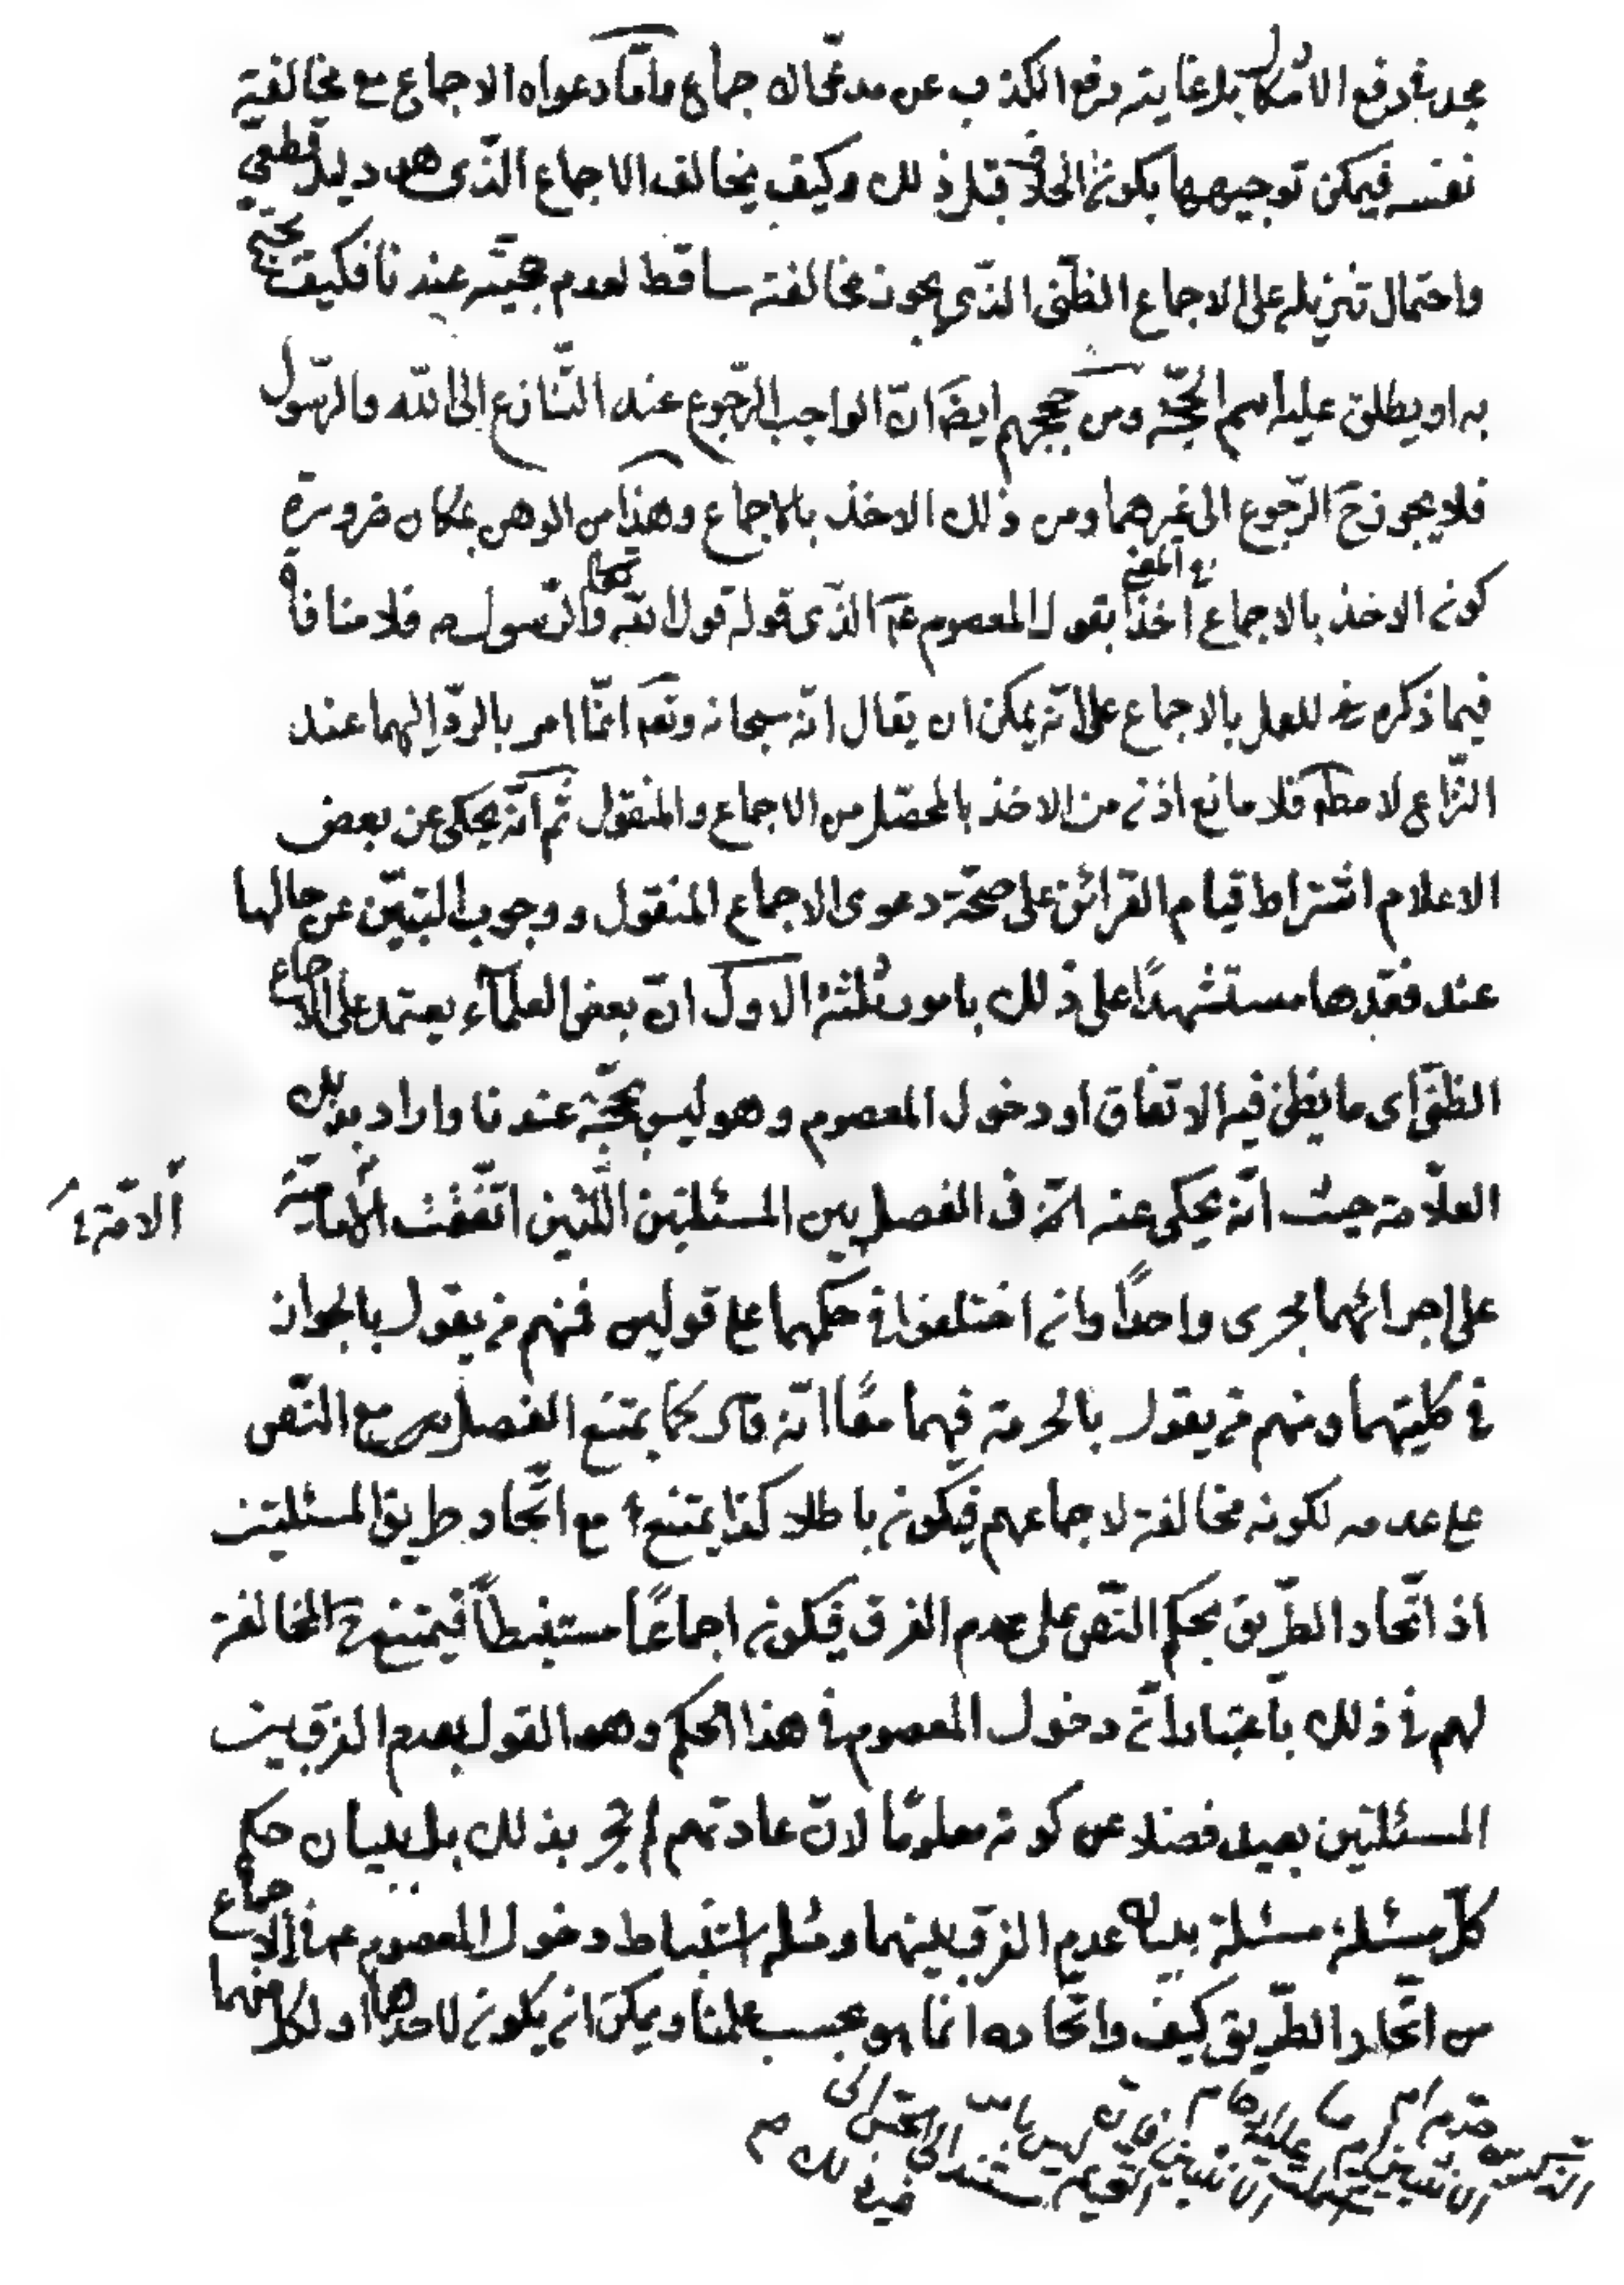 مجد في دفع الاشكال بل غايته رفع الكذب عن مدعي الاجماع واما دعواه الاجماع مع مخالفته
نفسه فيمكن توجيهها بكون الخلاف قبل ذلك وكيف يخالف الاجماع الذى هو دليل قطعي
واحتمال تنزيله على الاجماع الظنى الذى يجوز مخالفته ساقط لعدم حجيته عندنا فكيف يحتج
به او يطلق عليه اسم الحجة ومن حججهم ايضا انّ الواجب الرّجوع عند التنازع الى الله والرّسول
فلا يجوز ح الرّجوع الى غيرهما ومن ذلك الاخذ بالاجماع وهذا من الوهن بمكان ضرورة
كون الاخذ بالاجماع اخذا بقول المعصوم عم الذى قوله قول الله تعالى والرّسول ص فلا منافاة
فيما ذكره للعمل بالاجماع على انّه يمكن ان يقال انّه سبحانه وتعم انّما امر بالردّ اليهما عند
النزاع لا مطم فلا مانع اذن من الاخذ بالمحصّل من الاجماع والمنقول ثم انّه يحكى عن بعض
الاعلام اشتراط قيام القرائن على صحّة دعوى الاجماع المنقول ووجوب التبيّن عن حالها
عند فقدها مستشهدًا على ذلك بامور ثلثة الاول انّ بعض العلمآء يعتمد على الاجماع
الظنّى اى ما يظن فيه الاتفاق او دخول المعصوم وهو ليس بحجّة عندنا واراد بذلك
العلّامة حيث انّه يحكى عنه انّه فى الفصل بين المسئلتين اللتين اتّفقت الامامية
الامّة
على اجرائهما مجرى واحدًا وان اختلفوا فى حكمهما على قولين فمنهم من يقول بالجواز
فى كليتهما ومنهم من يقول بالحرمة فيهما معًا انّه قال كما يمتنع الفصل مع النّص
على عدمه لكونه مخالفة لاجماعهم فيكون باطلا كذا يمتنع مع اتّحاد طريق المسئلتين
اذ اتّحاد الطّريق بحكم النّص على عدم الفرق فيكون اجماعًا مستنبطًا فيمتنع ح المخالفة
لهم فى ذلك باعتبار انّ دخول المعصوم فى هذا الحكم وهو القول بعدم الفرق بين
المسئلتين بعيد فضلا عن كونه معلومًا لانّ عادتهم لم تجر بذلك بل ببيان حكم
كلّ مسئلة مسئلة بيان عدم الفرق بينهما ومثله استنباط دخول المعصوم عم فى الاجماع
من اتّحاد الطّريق كيف واتّحاده انّما هو بحسب علمنا ويمكن ان يكون لاحدهما او لكل منهما